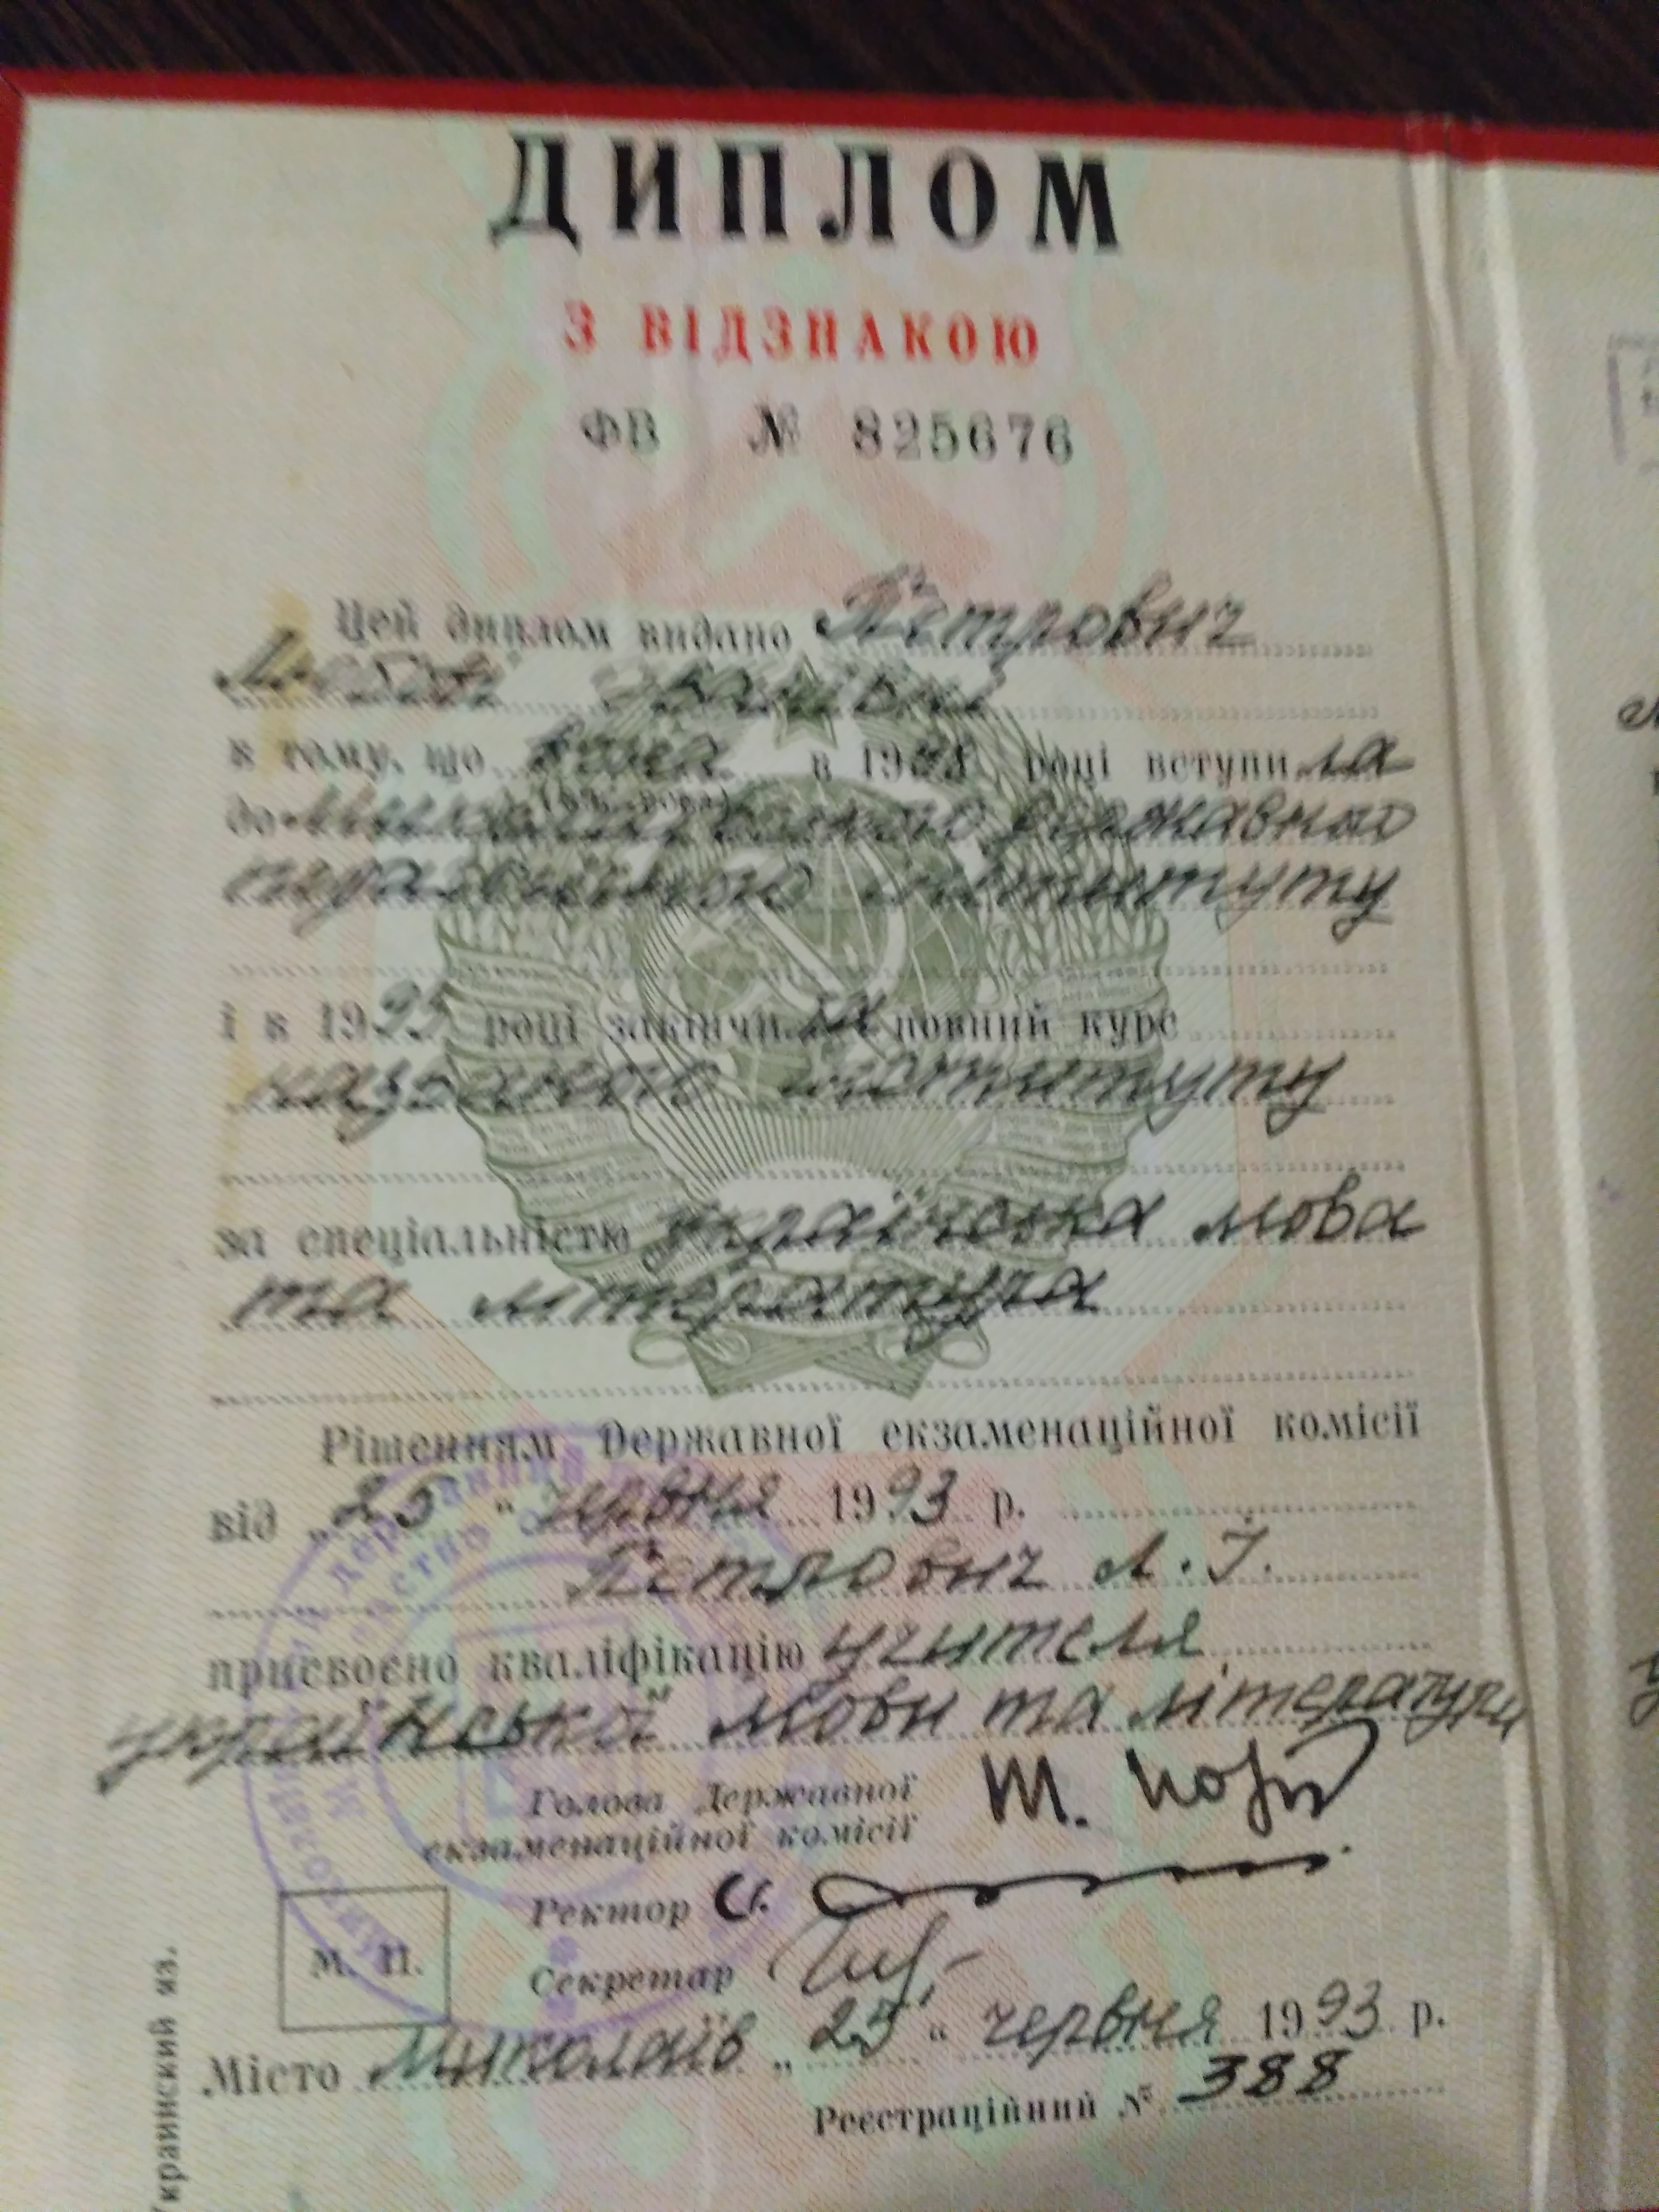 ДИПЛОМ
З ВІДЗНАКОЮ
ФВ № 825676
Цей диплом видано Петрович
Любові Іванівні
в тому, що вона в 1988 році вступила
до Миколаївського державного
педагогічного інституту
і в 1993 році закінчила повний курс
названого інституту
за спеціальністю українська мова
та література
Рішенням Державної екзаменаційної комісії
від „25“ червня 1993 р.
Петрович Л.І.
присвоєно кваліфікацію учителя
української мови та літератури
Голова Державної
екзаменаційної комісії
Ректор
Секретар
М. П.
Місто Миколаїв „25“ червня 1993 р.
Реєстраційний № 388
Украинский яз.